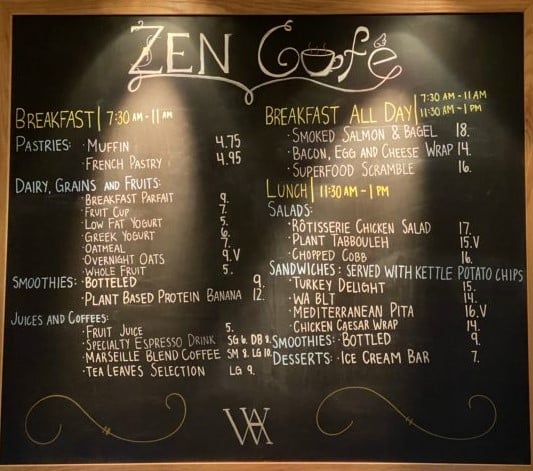 ZEN Café
BREAKFAST | 7:30 AM - 11 AM
PASTRIES: · MUFFIN 4.75
· FRENCH PASTRY 4.95
DAIRY, GRAINS AND FRUITS:
· BREAKFAST PARFAIT 9.
· FRUIT CUP 7.
· LOW FAT YOGURT 5.
· GREEK YOGURT 6.
· OATMEAL 7.
· OVERNIGHT OATS 9.V
· WHOLE FRUIT 5.
SMOOTHIES: · BOTTELED 9.
· PLANT BASED PROTEIN BANANA 12.
JUICES AND COFFEES:
· FRUIT JUICE 5.
· SPECIALTY ESPRESSO DRINK SG 6. DB 8.
· MARSEILLE BLEND COFFEE SM 8. LG 10.
· TEA LEAVES SELECTION LG 9.
BREAKFAST ALL DAY | 7:30 AM - 11 AM
11:30 AM - 1 PM
· SMOKED SALMON & BAGEL 18.
· BACON, EGG AND CHEESE WRAP 14.
· SUPERFOOD SCRAMBLE 16.
LUNCH | 11:30 AM - 1 PM
SALADS:
· RÔTISSERIE CHICKEN SALAD 17.
· PLANT TABBOULEH 15.V
· CHOPPED COBB 16.
SANDWICHES: SERVED WITH KETTLE POTATO CHIPS
· TURKEY DELIGHT 15.
· WA BLT 14.
· MEDITERRANEAN PITA 16.V
· CHICKEN CAESAR WRAP 14.
SMOOTHIES: · BOTTLED 9.
DESSERTS: · ICE CREAM BAR 7.
WA